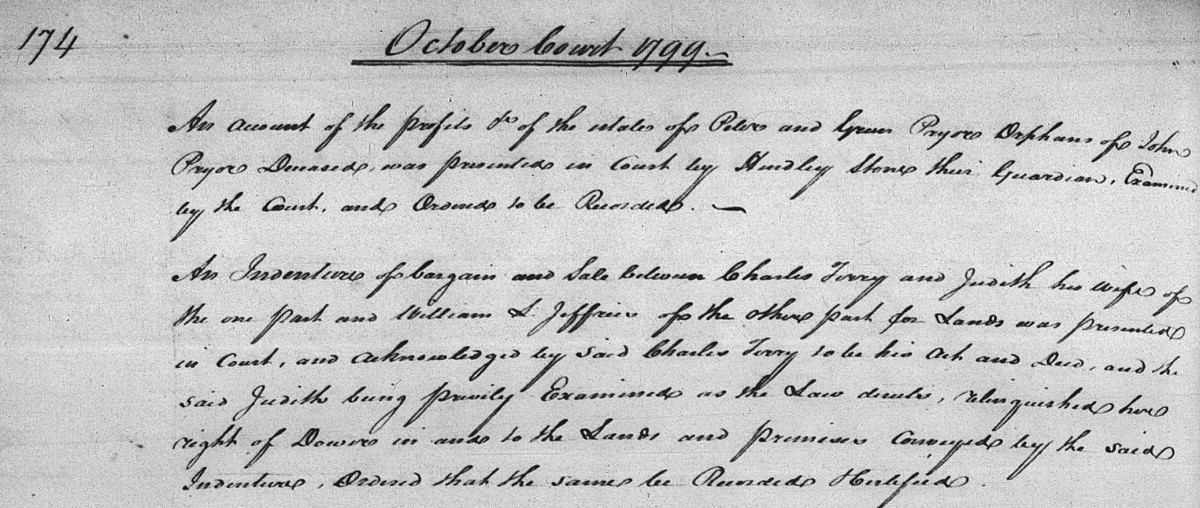 174
October Court 1799.
An account of the profits &c of the estate of Peter and Green Pryor Orphans of John
Pryor Deceased, was presented in Court by Hendley Stone their Guardian, Examined
by the Court, and Ordered to be Recorded.
An Indenture of bargain and Sale between Charles Terry and Judith his wife of
the one part and William S. Jeffries of the other part for Lands was presented
in Court, and acknowledged by said Charles Terry to be his Act and Deed, and the
said Judith being privily Examined as the Law directs, relinquished her
right of Dower in and to the Lands and premises conveyed by the said
Indenture, Ordered that the same be Recorded &certified.